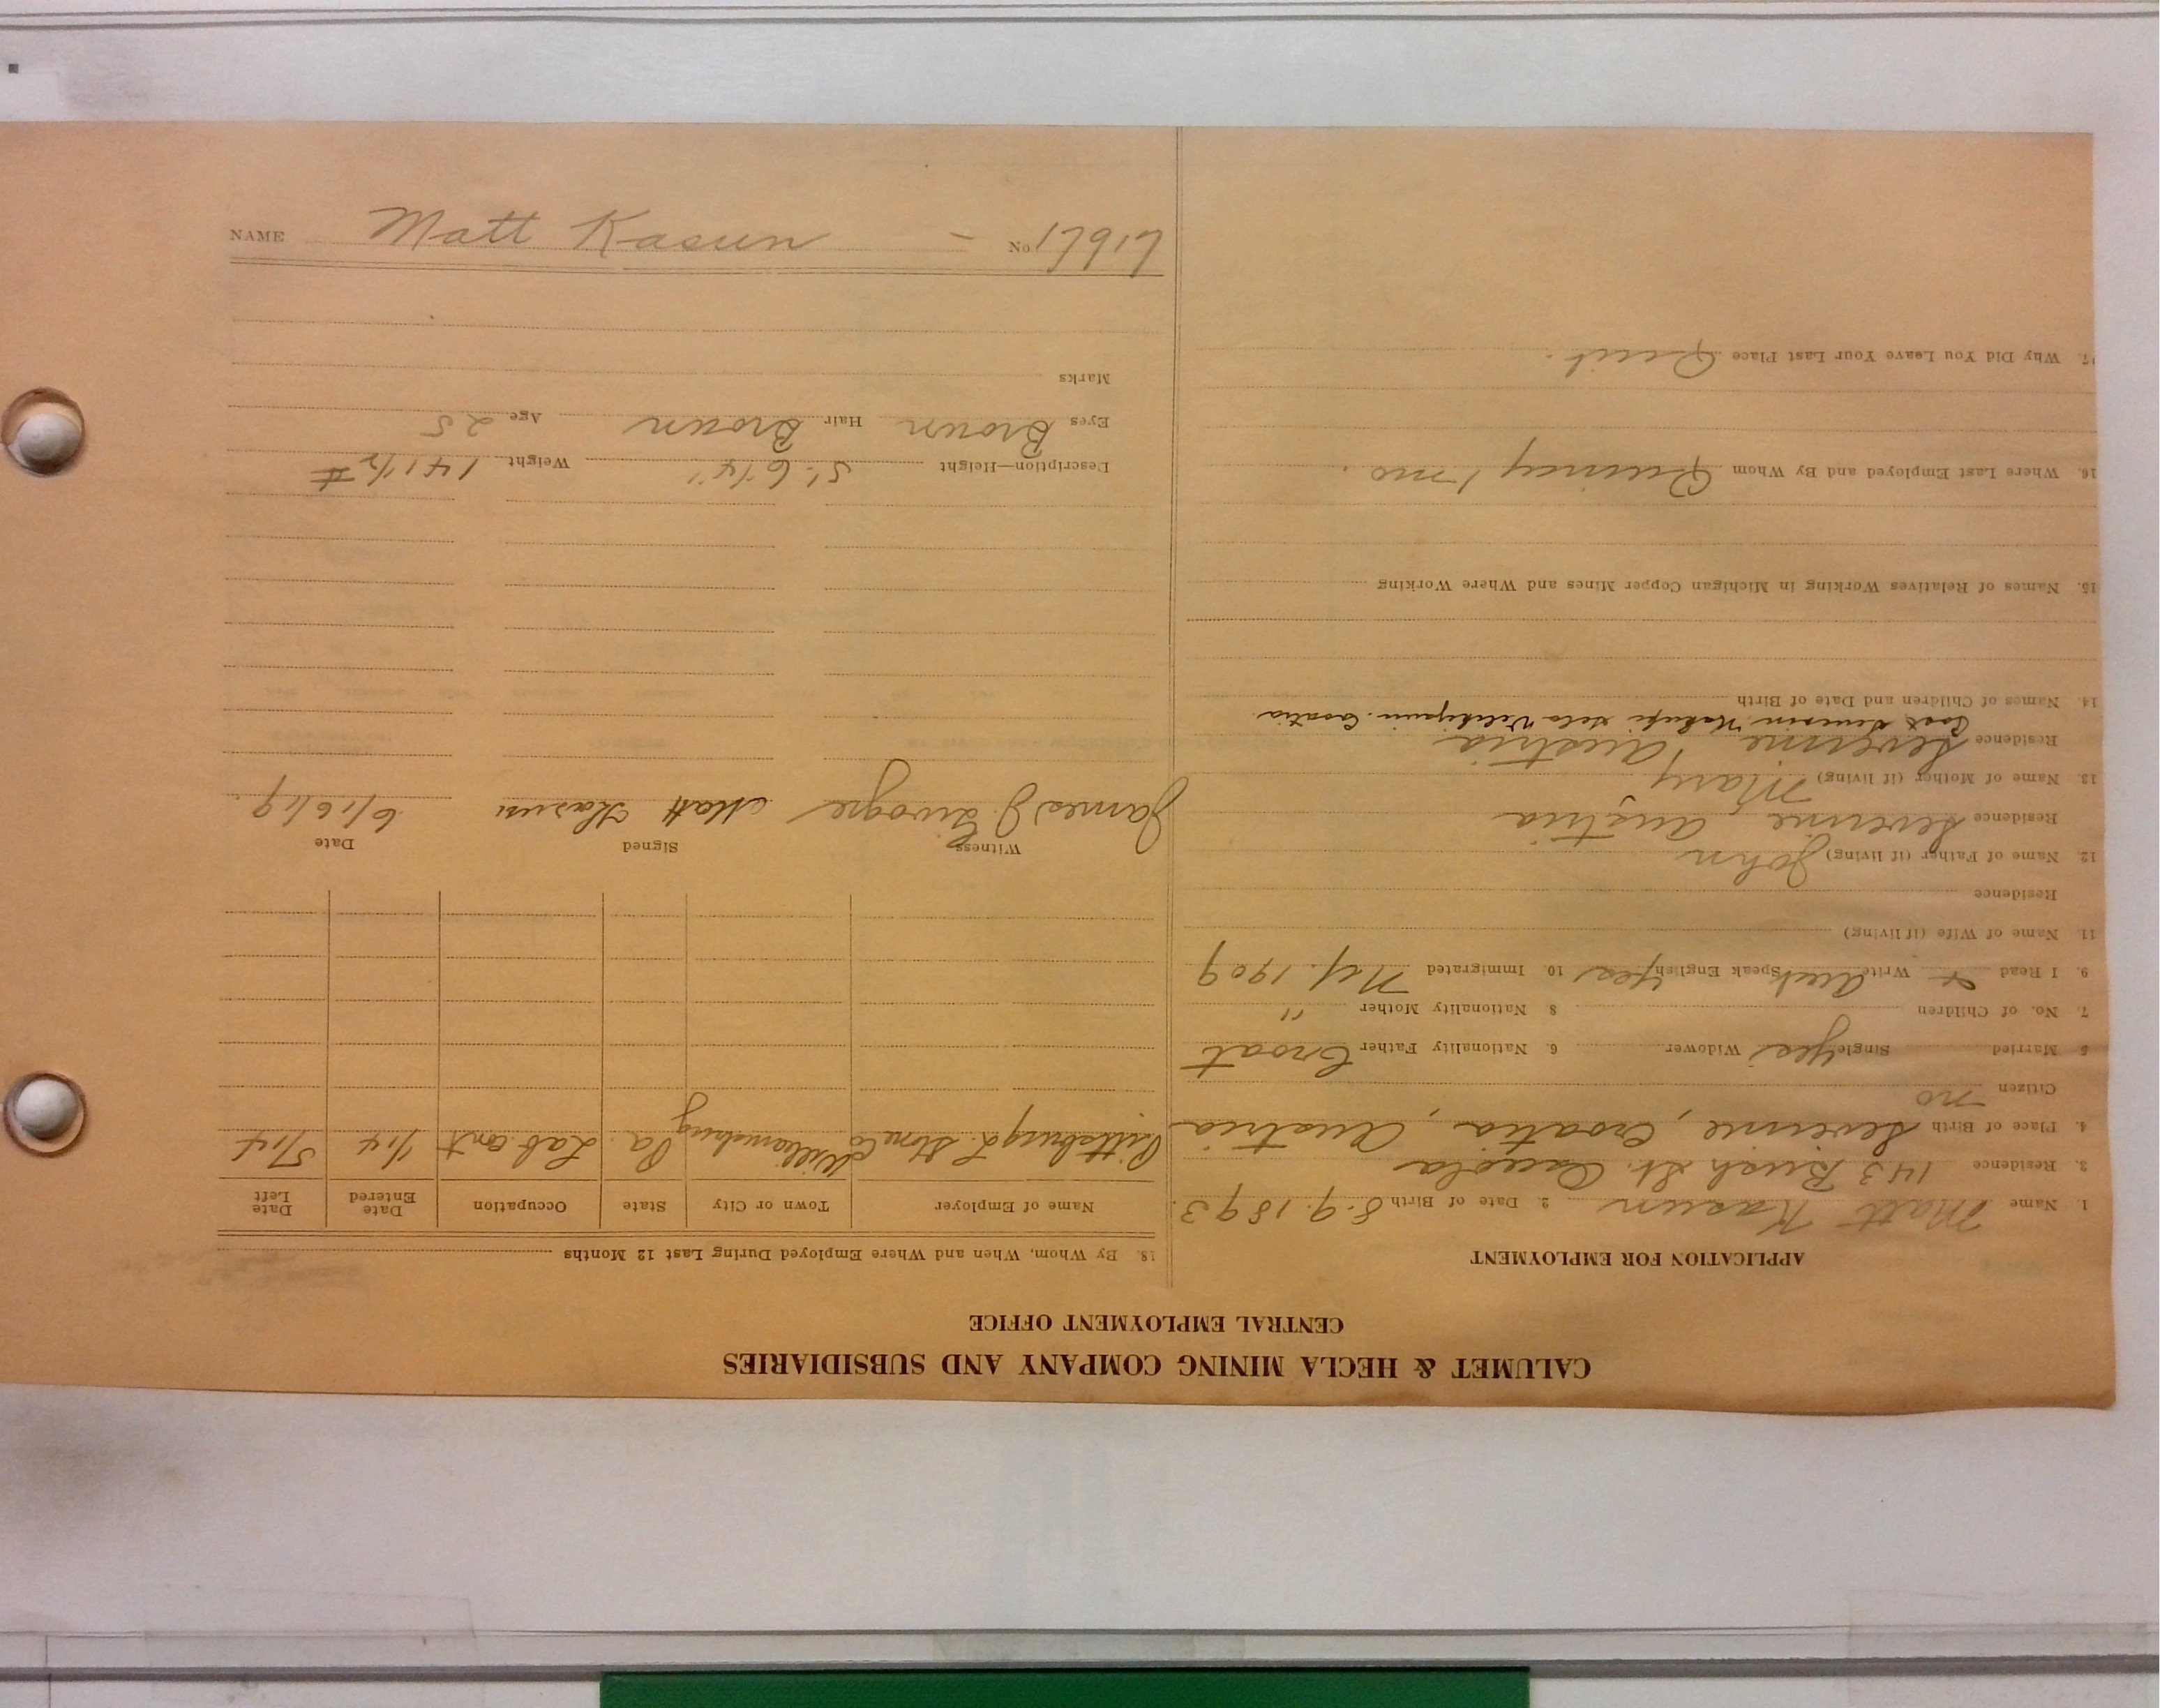 CALUMET & HECLA MINING COMPANY AND SUBSIDIARIES
CENTRAL EMPLOYMENT OFFICE
APPLICATION FOR EMPLOYMENT
1. Name Matt Kasun 2. Date of Birth 8-9-1893.
3. Residence 143 Bush St. Osceola
4. Place of Birth Severine, Croatia, Austria
Citizen no
5 Married Single yes Widower 6. Nationality Father Croat
7. No. of Children 8 Nationality Mother "
9. I Read & Write Aust Speak English yes 10. Immigrated N.Y. 1909
11. Name of Wife (if living)
Residence
12. Name of Father (if living) John
Residence Severine Austria
13. Name of Mother (if living) Mary
Residence Severine, Austria
Post Severin Croatia
14. Names of Children and Date of Birth
15. Names of Relatives Working in Michigan Copper Mines and Where Working
16. Where Last Employed and By Whom Quincy 1 mo.
17. Why Did You Leave Your Last Place Quit.
18. By Whom, When and Where Employed During Last 12 Months
Name of Employer Town or City State Occupation Date Entered Date Left
Pittsburg L. Stone Co Williamsburg Pa. Lab. ont 1/14 5/14
Witness Signed Date
James J. Matt Kasun 6/16/19.
Description—Height 5'-6 1/4" Weight 141 1/2 #
Eyes Brown Hair Brown Age 25
Marks
NAME Matt Kasun - No. 17917